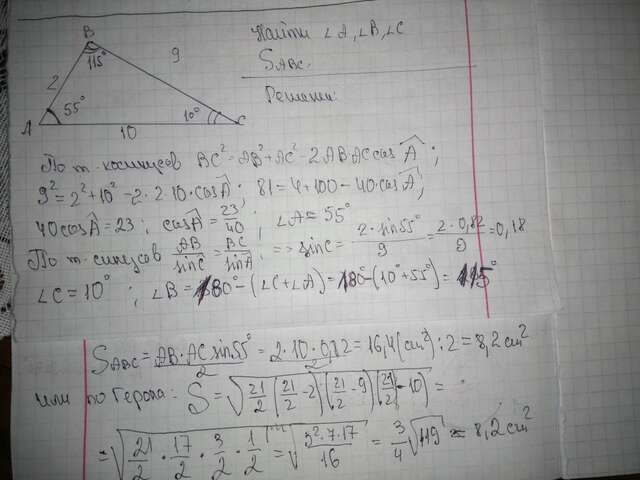 Найти ∠A, ∠B, ∠C
S ABC.
Решение:
A
B
C
2
9
10
55°
115°
10°
По т. косинусов BC² = AB² + AC² - 2AB AC cos A;
9² = 2² + 10² - 2·2·10·cos A; 81 = 4 + 100 - 40·cos A;
40 cos A = 23; cos A = 23/40; ∠A = 55°
По т. синусов AB/sin C = BC/sin A => sin C = 2·sin 55°/9 = 2·0,82/9 = 0,18
∠C = 10°; ∠B = 180° - (∠C + ∠A) = 180° - (10° + 55°) = 115°
S ABC = AB·AC sin 55°/2 = 2·10·0,82/2 = 16,4 (cm²) : 2 = 8,2 cm²
или по Герона: S = √(21/2 (21/2 - 2)(21/2 - 9)(21/2 - 10)) =
= √(21/2 · 17/2 · 3/2 · 1/2) = √(3²·7·17/16) = 3/4 √119 ≈ 8,2 cm²